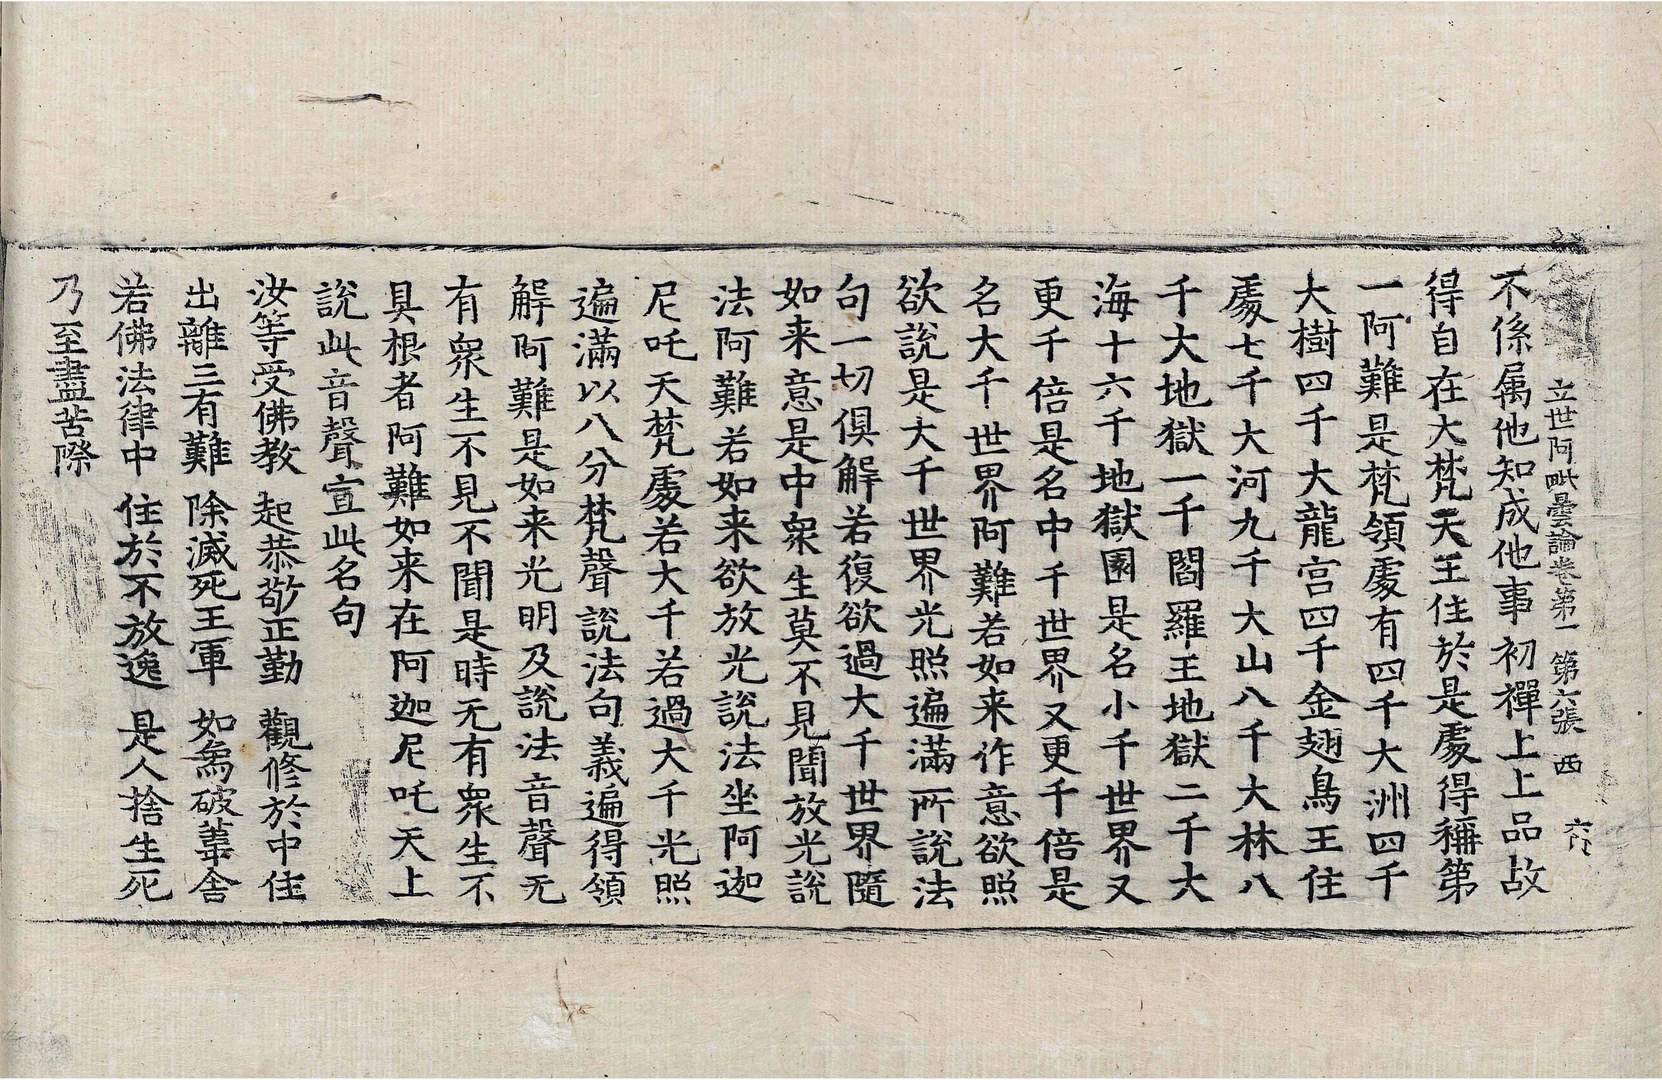 立世阿毗曇論卷第一 第六張 西
不係属他知成他事初禪上上品故
得自在大梵天王住於是處得稱第
一阿難是梵領處有四千大洲四千
大樹四千大龍宮四千金翅鳥王住
處七千大河九千大山八千大林八
千大地獄一千閻羅王地獄二千大
海十六千地獄園是名小千世界又
更千倍是名中千世界又更千倍是
名大千世界阿難若如来作意欲照
欲說是大千世界光照遍滿所說法
句一切俱解若復欲過大千世界隨
如来意是中衆生莫不見聞放光說
法阿難若如来欲放光說法坐阿迦
尼吒天梵處若大千若過大千光照
遍滿以八分梵聲說法句義遍得領
解阿難是如来光明及說法音聲无
有衆生不見不聞是時无有衆生不
具根者阿難如来在阿迦尼吒天上
說此音聲宣此名句
汝等受佛教 起恭敬正勤 觀修於中住
出離三有難 除滅死王軍 如象破葦舍
若佛法律中 住於不放逸 是人捨生死
乃至盡苦際